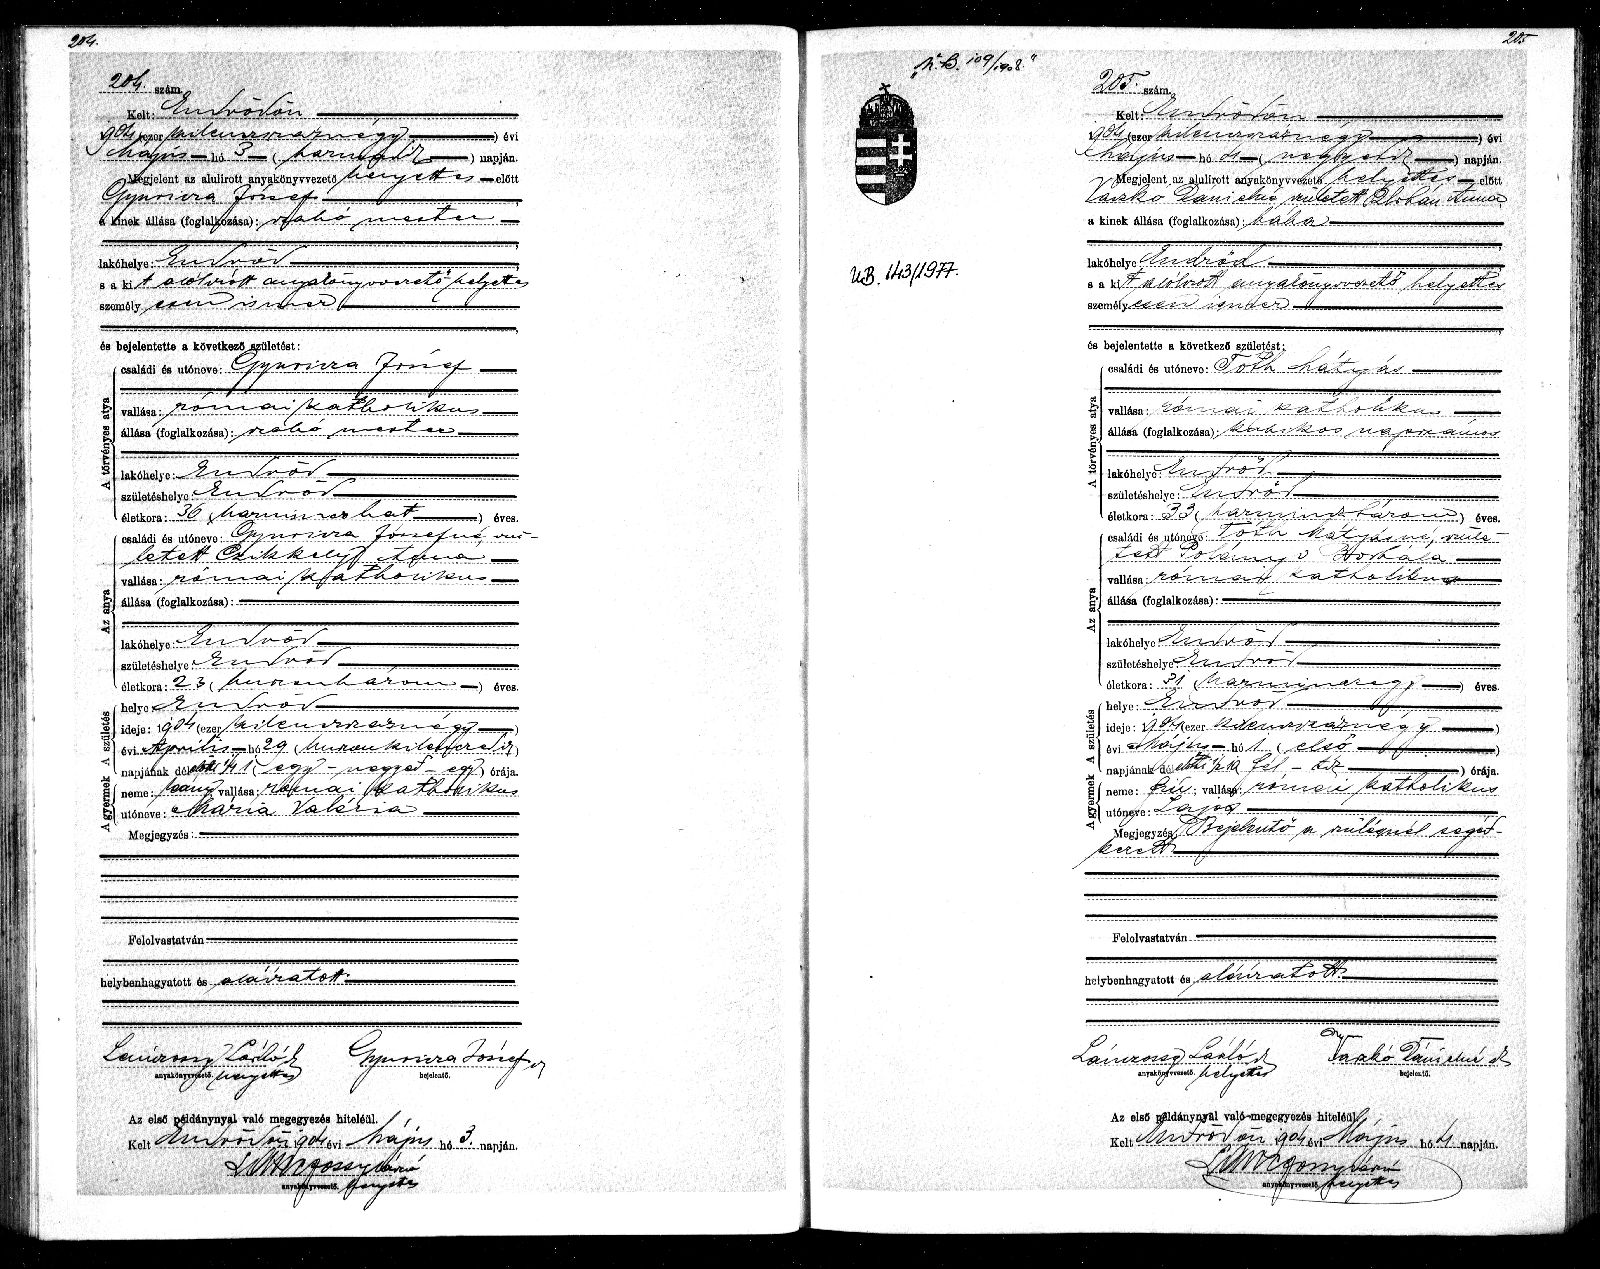 204.
204. szám.
Kelt: Endrődön
1904 (ezer kilenczszáznégy) évi
Május hó 3 (harmadik) napján.
Megjelent az alulirott anyakönyvvezető helyettes előtt
József
a kinek állása (foglalkozása): szabó mester
lakóhelye: Endrőd
s a kit alólirott anyakönyvvezető helyettes
személyesen ismer
és bejelentette a következő születést:
A törvényes atya
családi és utóneve: József
vallása: római katholikus
állása (foglalkozása): szabó mester
lakóhelye: Endrőd
születéshelye: Endrőd
életkora: 36 (harminczhat) éves.
Az anya
családi és utóneve: Józsefné, szü-
letett Anna
vallása: római katholikus
állása (foglalkozása):
lakóhelye: Endrőd
születéshelye: Endrőd
életkora: 23 (huszonhárom) éves.
A születés
helye: Endrőd
ideje: 1904 (ezer kilenczszáznégy)
évi Április hó 29 (huszonkilenczedik)
napjának délelőtti 1/4 1 (egy-negyed-egy) órája.
A gyermek
neme: leány; vallása: római katholikus
utóneve: Mária Valéria
Megjegyzés:
Felolvastatván
helybenhagyatott és aláiratott.
László József
anyakönyvvezető. helyettes bejelentő.
Az első példánynyal való megegyezés hiteléül.
Kelt Endrődön 1904 évi Május hó 3. napján.
anyakönyvvezető. helyettes
205
"U.B. 109/1908."
UB. 143/1977.
205. szám.
Kelt: Endrődön
1904 (ezer kilenczszáznégy) évi
Május hó 4 (negyedik) napján.
Megjelent az alulirott anyakönyvvezető helyettes előtt
Vaszkó Dánielné született Anna
a kinek állása (foglalkozása): bába
lakóhelye: Endrőd
s a kit alólirott anyakönyvvezető helyettes
személyesen ismer
és bejelentette a következő születést:
A törvényes atya
családi és utóneve: Tóth Mátyás
vallása: római katholikus
állása (foglalkozása): kubikos napszámos
lakóhelye: Endrőd
születéshelye: Endrőd
életkora: 33 (harminczhárom) éves.
Az anya
családi és utóneve: Tóth Mátyásné, szüle-
tett Polányi Borbála
vallása: római katholikus
állása (foglalkozása):
lakóhelye: Endrőd
születéshelye: Endrőd
életkora: 31 (harminczegy) éves.
A születés
helye: Endrőd
ideje: 1904 (ezer kilenczszáznégy)
évi Május hó 1 (első)
napjának délelőtti 1/2 10 fél-tiz órája.
A gyermek
neme: fiú; vallása: római katholikus
utóneve: Lajos
Megjegyzés: Bejelentő a szülésnél segéd-
kezett
Felolvastatván
helybenhagyatott és aláiratott.
László Vaszkó Dánielné
anyakönyvvezető. helyettes bejelentő.
Az első példánynyal való megegyezés hiteléül.
Kelt Endrődön 1904 évi Május hó 4. napján.
anyakönyvvezető. helyettes